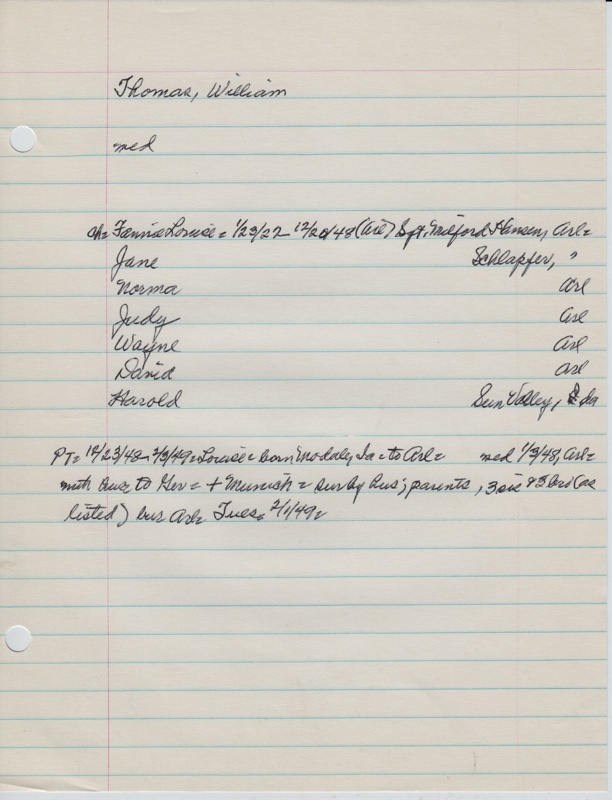 Thomas, William
med
ch= Fannie Louise= 1/23/22- 12/20/48 (Arl) Sgt. Milford Hansen, Arl=
Jane Schlapfer, "
Norma Arl
Judy Arl
Wayne Arl
David Arl
Harold Sun Valley, Ida
PT= 12/23/48- 2/3/49= Louise= born Modale, Ia= to Arl= med 1/3/48, Arl=
with hus= to Ger= + Munich= sur by hus; parents, 3 sis & 3 bro (as
listed) bur Arl= Tues= 2/1/49=